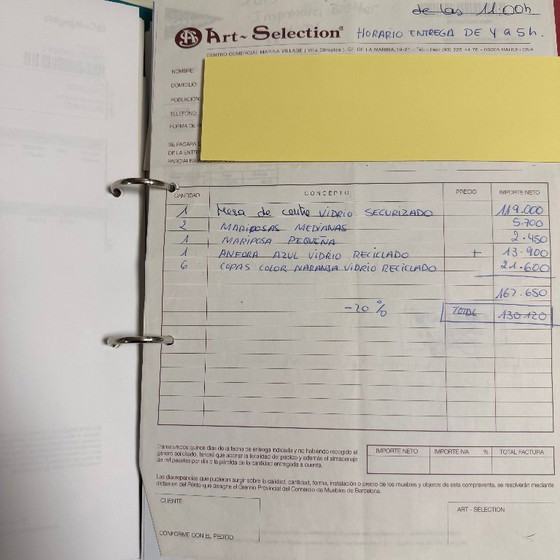 de las 11:00h
Art-Selection® HORARIO ENTREGA DE 4 a 5h.
CENTRO COMERCIAL MARINA VILLAGE (Vila Olímpica)
NOMBRE
DOMICILIO
POBLACION
TELEFONO
FORMA DE
SE PAGARA
DE LA ENTR
PARCIALES
CANTIDAD CONCEPTO PRECIO IMPORTE NETO
1 Mesa de centro VIDRIO SECURIZADO 119.000
2 MARIPOSAS MEDIANAS 5.700
1 MARIPOSA PEQUEÑA 2.450
1 ANFORA AZUL VIDRIO RECICLADO + 13.900
6 COPAS COLOR NARANJA VIDRIO RECICLADO 21.600
162.650
-20% TOTAL 130.120
Transcurridos quince días de la fecha de entrega indicada y no habiendo recogido el
género solicitado, tendrá que abonar la totalidad del pedido y además el almacenaje
de mil pesetas por día o la pérdida de la cantidad entregada a cuenta.
IMPORTE NETO IMPORTE IVA % TOTAL FACTURA
Las discrepancias que pudieran surgir sobre la calidad, cantidad, forma, instalación o precio de los muebles y objetos de esta compraventa, se resolverán mediante
dictamen del Perito que designe el Gremio Provincial del Comercio de Muebles de Barcelona.
CLIENTE
ART - SELECTION
CONFORME CON EL PEDIDO